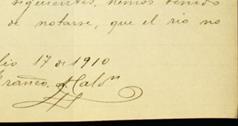 siguientes, hemos tenido
de notarse, que el río no
lio 17 de 1910
Franco. A. Cald^n